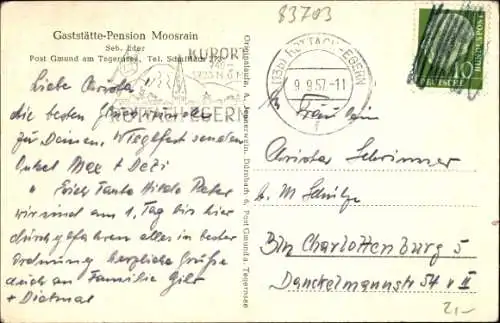 83703
Gaststätte-Pension Moosrain
Seb. Eder
Post Gmund am Tegernsee, Tel. Schaftlach
KURORT
ROTTACH-EGERN
(13b) ROTTACH-EGERN
9.9.57-11
10
DEUTSCHE BUNDESPOST
Originalaufn. A. Jennerwein, Dürnbach 6, Post Gmund a. Tegernsee
Liebe Christa!
die besten Glückwünsche
zu Deinem Wiegenfest senden
Onkel Max + Dezi
Auch Tante Peter
wir sind am 1. Tag bis hier
durchgefahren alles in bester
Ordnung herzliche Grüße
auch an Familie
+ Dietmar
An Fräulein
Christa
b. M Schulze
Bln Charlottenburg 5
Danckelmannstr 54 v II
2,-